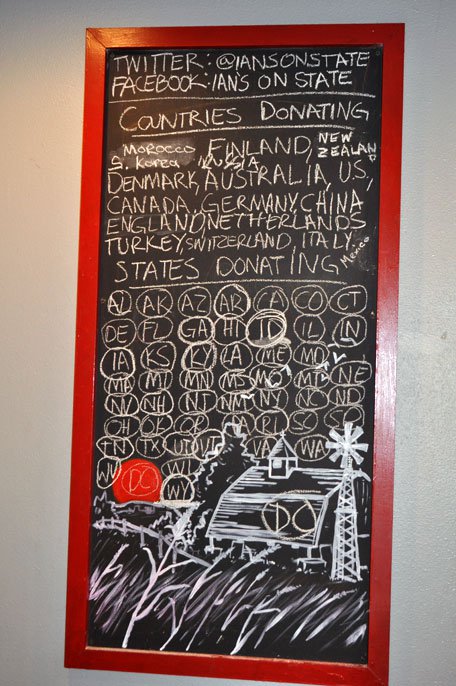 TWITTER: @IANSONSTATE
FACEBOOK: IAN'S ON STATE
COUNTRIES DONATING
MOROCCO FINLAND, NEW ZEALAND
S. Korea
DENMARK, AUSTRALIA, US,
CANADA, GERMANY, CHINA
ENGLAND, NETHERLANDS
TURKEY, SWITZERLAND, ITALY, Mexico
STATES DONATING
AL AK AZ AR CA CO CT
DE FL GA HI ID IL IN
IA KS KY LA ME MD
MA MI MN MS MO MT NE
NV NH NT NM NY NC ND
OH OK OR PA RI SC SD
TN TX UT VT VA WA
WV DC WI
WY
DC